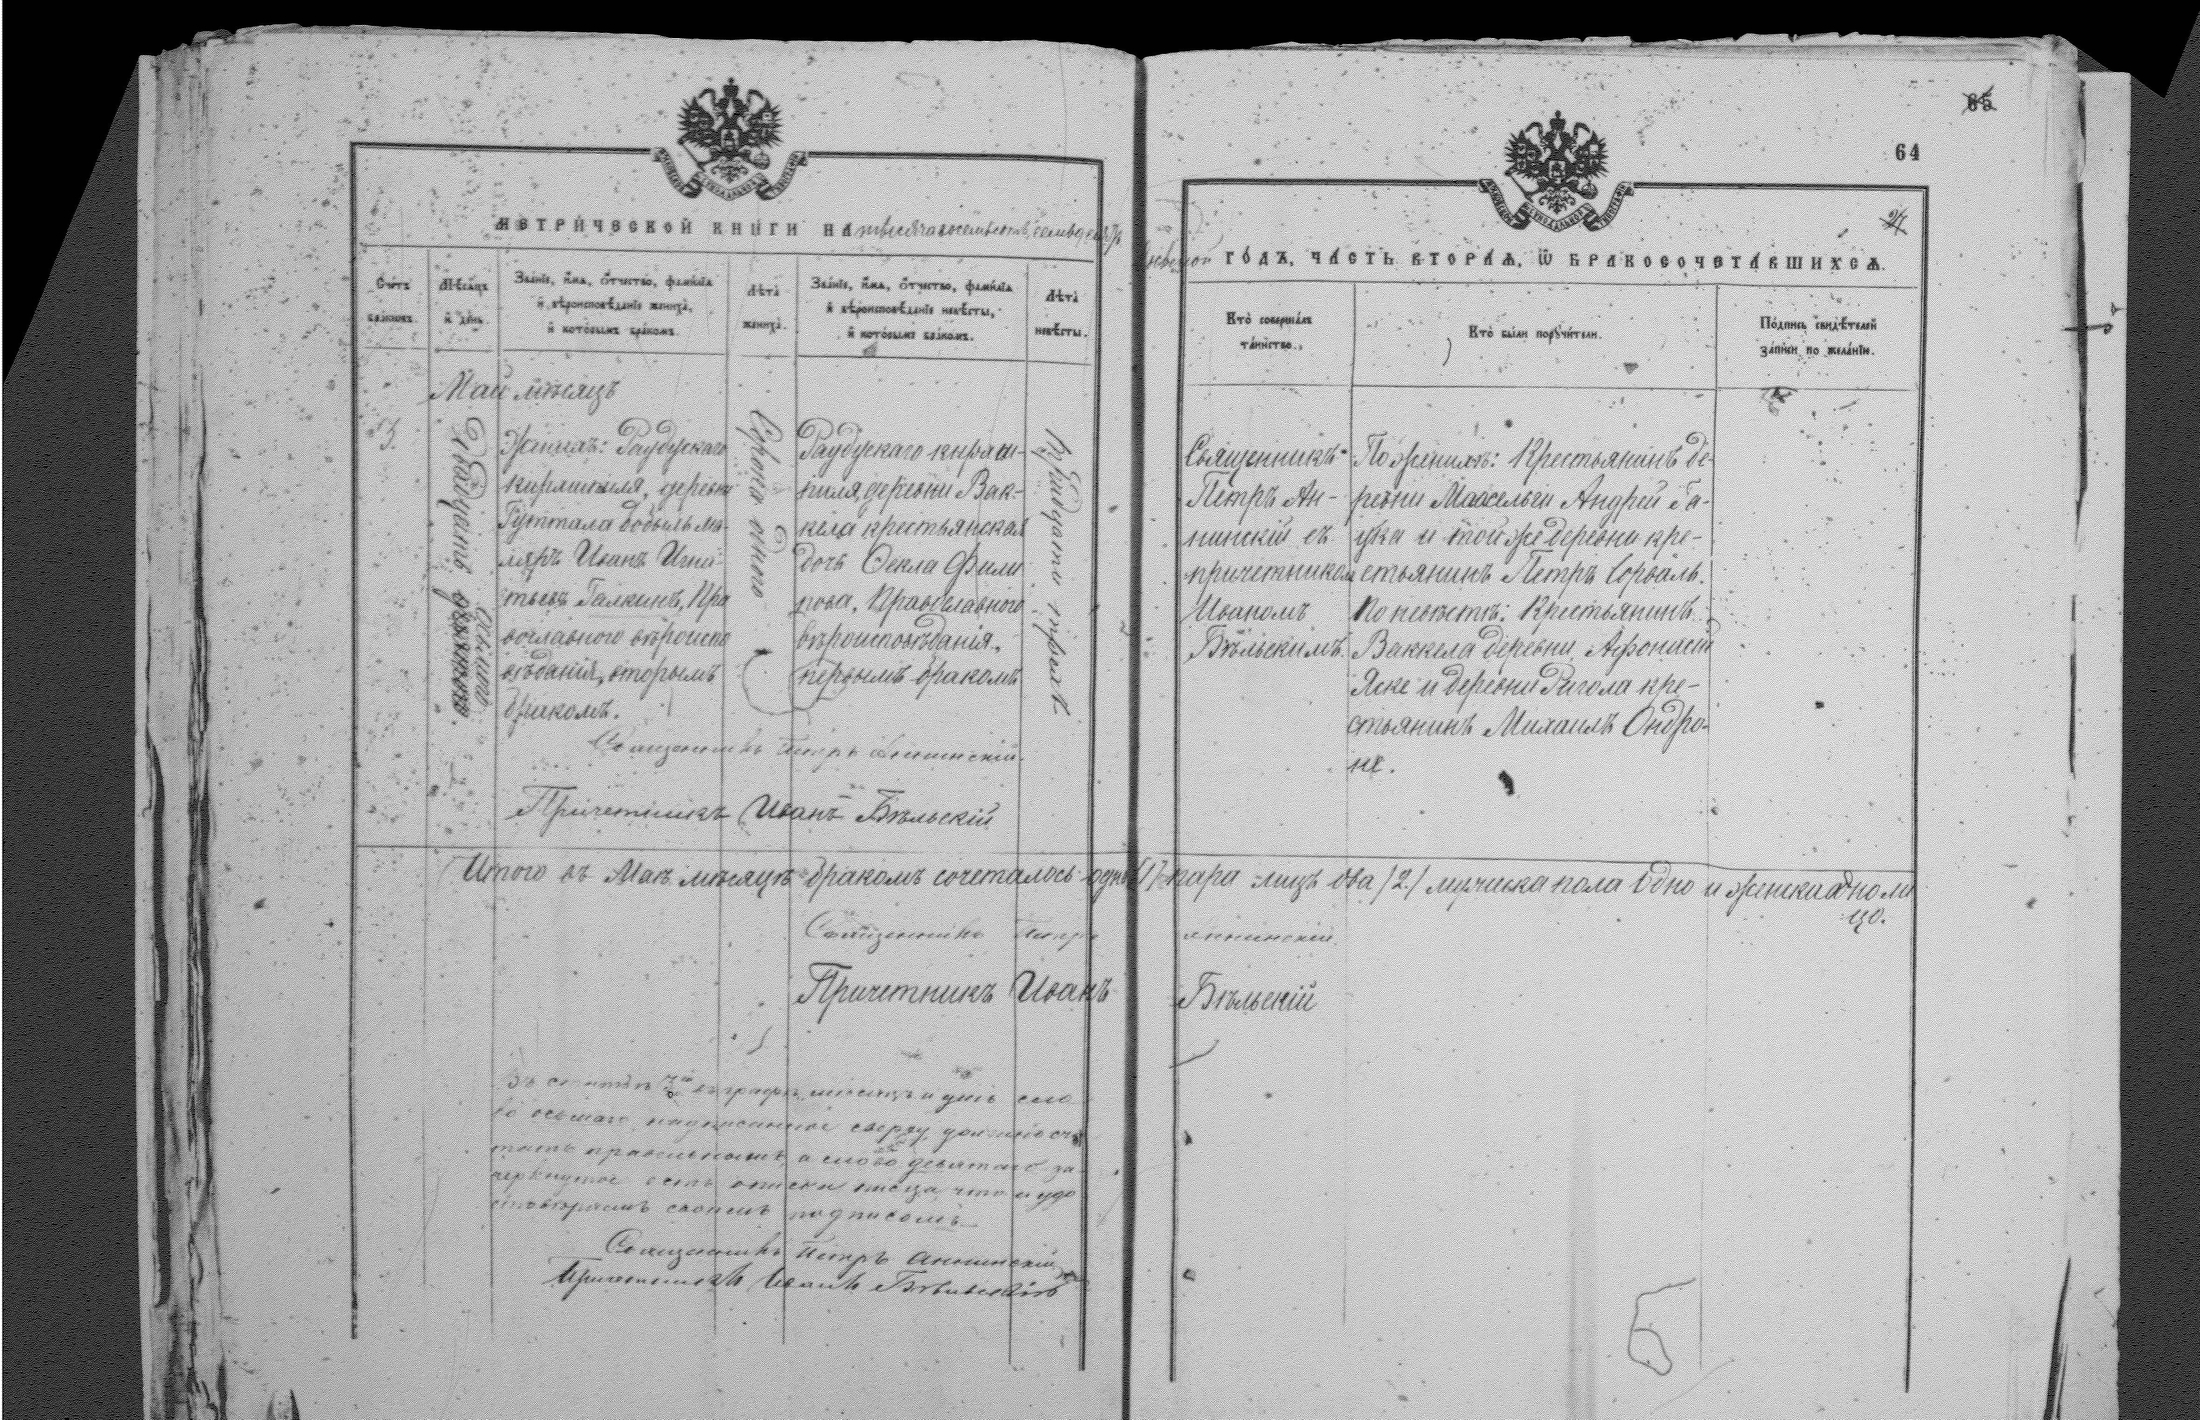 65
64
МЕТРИЧЕСКОЙ КНИГИ НА тысяча восемьсотъ семьдесятъ
ГОДЪ, ЧАСТЬ ВТОРАЯ, Ѿ БРАКОСОЧЕТАВШИХСЯ.
Счетъ браковъ.
Мѣсяцъ и день.
Званіе, имя, отчество, фамилія
и вѣроисповѣданіе жениха,
и которымъ бракомъ.
Лѣта
жениха.
Званіе, имя, отчество, фамилія
и вѣроисповѣданіе невѣсты,
и которымъ бракомъ.
Лѣта
невѣсты.
Кто совершалъ
таинство.
Кто были поручители.
Подпись свидѣтелей
записи по желанію.
Май мѣсяцъ
3.
Двадцать девятаго
осьмаго
Женихъ: Раудускаго
киряшпиля, деревни
Гуттала бобыль ма-
ляръ Иванъ Игна-
тьевъ Галкинъ, Пра
вославного вѣроиспо
вѣданія, вторымъ
бракомъ.
Сорокъ одного
Раудускаго киряш-
пиля, деревни Вак-
кела крестьянская
дочь Ѳекла Фили
пова, Православного
вѣроисповѣданія,
первымъ бракомъ
Тридцати трехъ
Священникъ
Петръ Ан-
нинскій съ
причетником
Иваномъ
Бѣльскимъ.
По женихѣ: Крестьянинъ де-
ревни Маасельки Андрей Га-
ука и той же деревни кре-
стьянинъ Петръ Сорваль.
По невѣстѣ: Крестьянинъ
Ваккела деревни Афонасій
Яске и деревни Ригола кре-
стьянинъ Михаилъ Ондро-
не.
Священникъ Петръ Аннинскій.
Причетникъ Иванъ Бѣльскій
Итого въ Маѣ мѣсяцѣ бракомъ сочеталось одна (1) пара лицъ два (2.) мужеска пола одно и женска одно ли
цо.
Священникъ Петръ Аннинскій.
Причетникъ Иванъ Бѣльскій
Въ статьѣ 3й въ графѣ мѣсяцъ и день сло
во осьмаго, надписанное сверху, должно счи
тать правильнымъ, а слово девятаго за
черкнутое есть описка писца, что и удо
стовѣряемъ своимъ подписомъ
Священникъ Петръ Аннинскій
Причетникъ Иванъ Бѣльскій